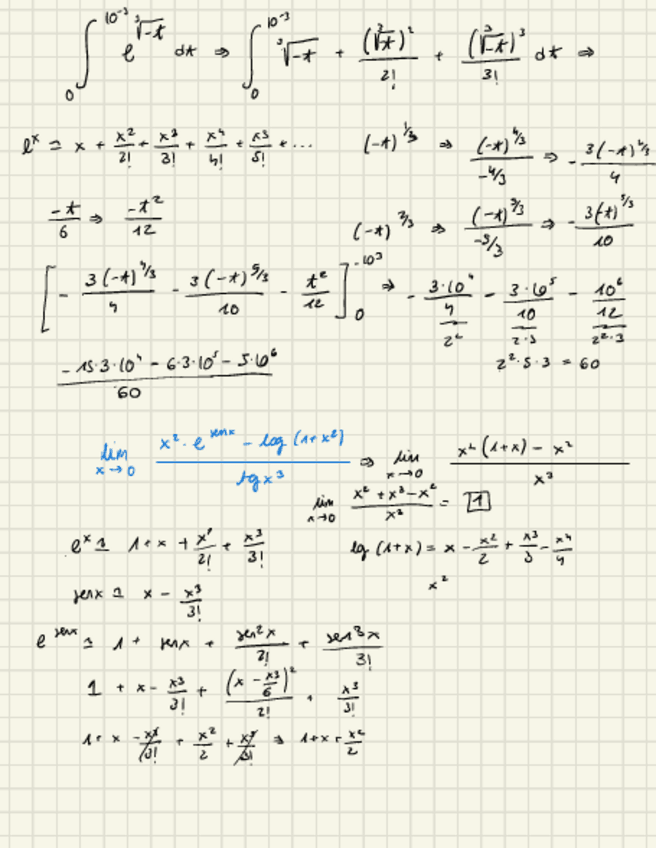 ∫₀^{10⁻³} e^{∛(-t)} dt ⇒ ∫₀^{10⁻³} ∛(-t) + (∛(-t))²/2! + (∛(-t))³/3! dt ⇒
eˣ ≃ x + x²/2! + x³/3! + x⁴/4! + x⁵/5! + ... (-t)^{1/3} ⇒ (-t)^{4/3}/(-4/3) ⇒ - 3(-t)^{4/3}/4
-t/6 ⇒ -t²/12 (-t)^{2/3} ⇒ (-t)^{5/3}/(-5/3) ⇒ - 3(-t)^{5/3}/10
[ - 3(-t)^{4/3}/4 - 3(-t)^{5/3}/10 - t²/12 ]₀^{-10³} ⇒ - 3·10⁴/4 - 3·10⁵/10 - 10⁶/12
2² 2·5 2²·3
2²·5·3 = 60
(-15·3·10⁴ - 6·3·10⁵ - 5·10⁶)/60
lim x→0 (x²·e^{senx} - log(1+x²))/tgx³ ⇒ lim x→0 (x²(1+x) - x²)/x³
lim x→0 (x² + x³ - x²)/x³ = 1
eˣ ≃ 1 + x + x²/2! + x³/3! log(1+x) = x - x²/2 + x³/3 - x⁴/4
x²
senx ≃ x - x³/3!
e^{senx} ≃ 1 + senx + sen²x/2! + sen³x/3!
1 + x - x³/3! + (x - x³/6)²/2! + x³/3!
1 + x - x³/3! + x²/2 + x³/3! ⇒ 1 + x + x²/2